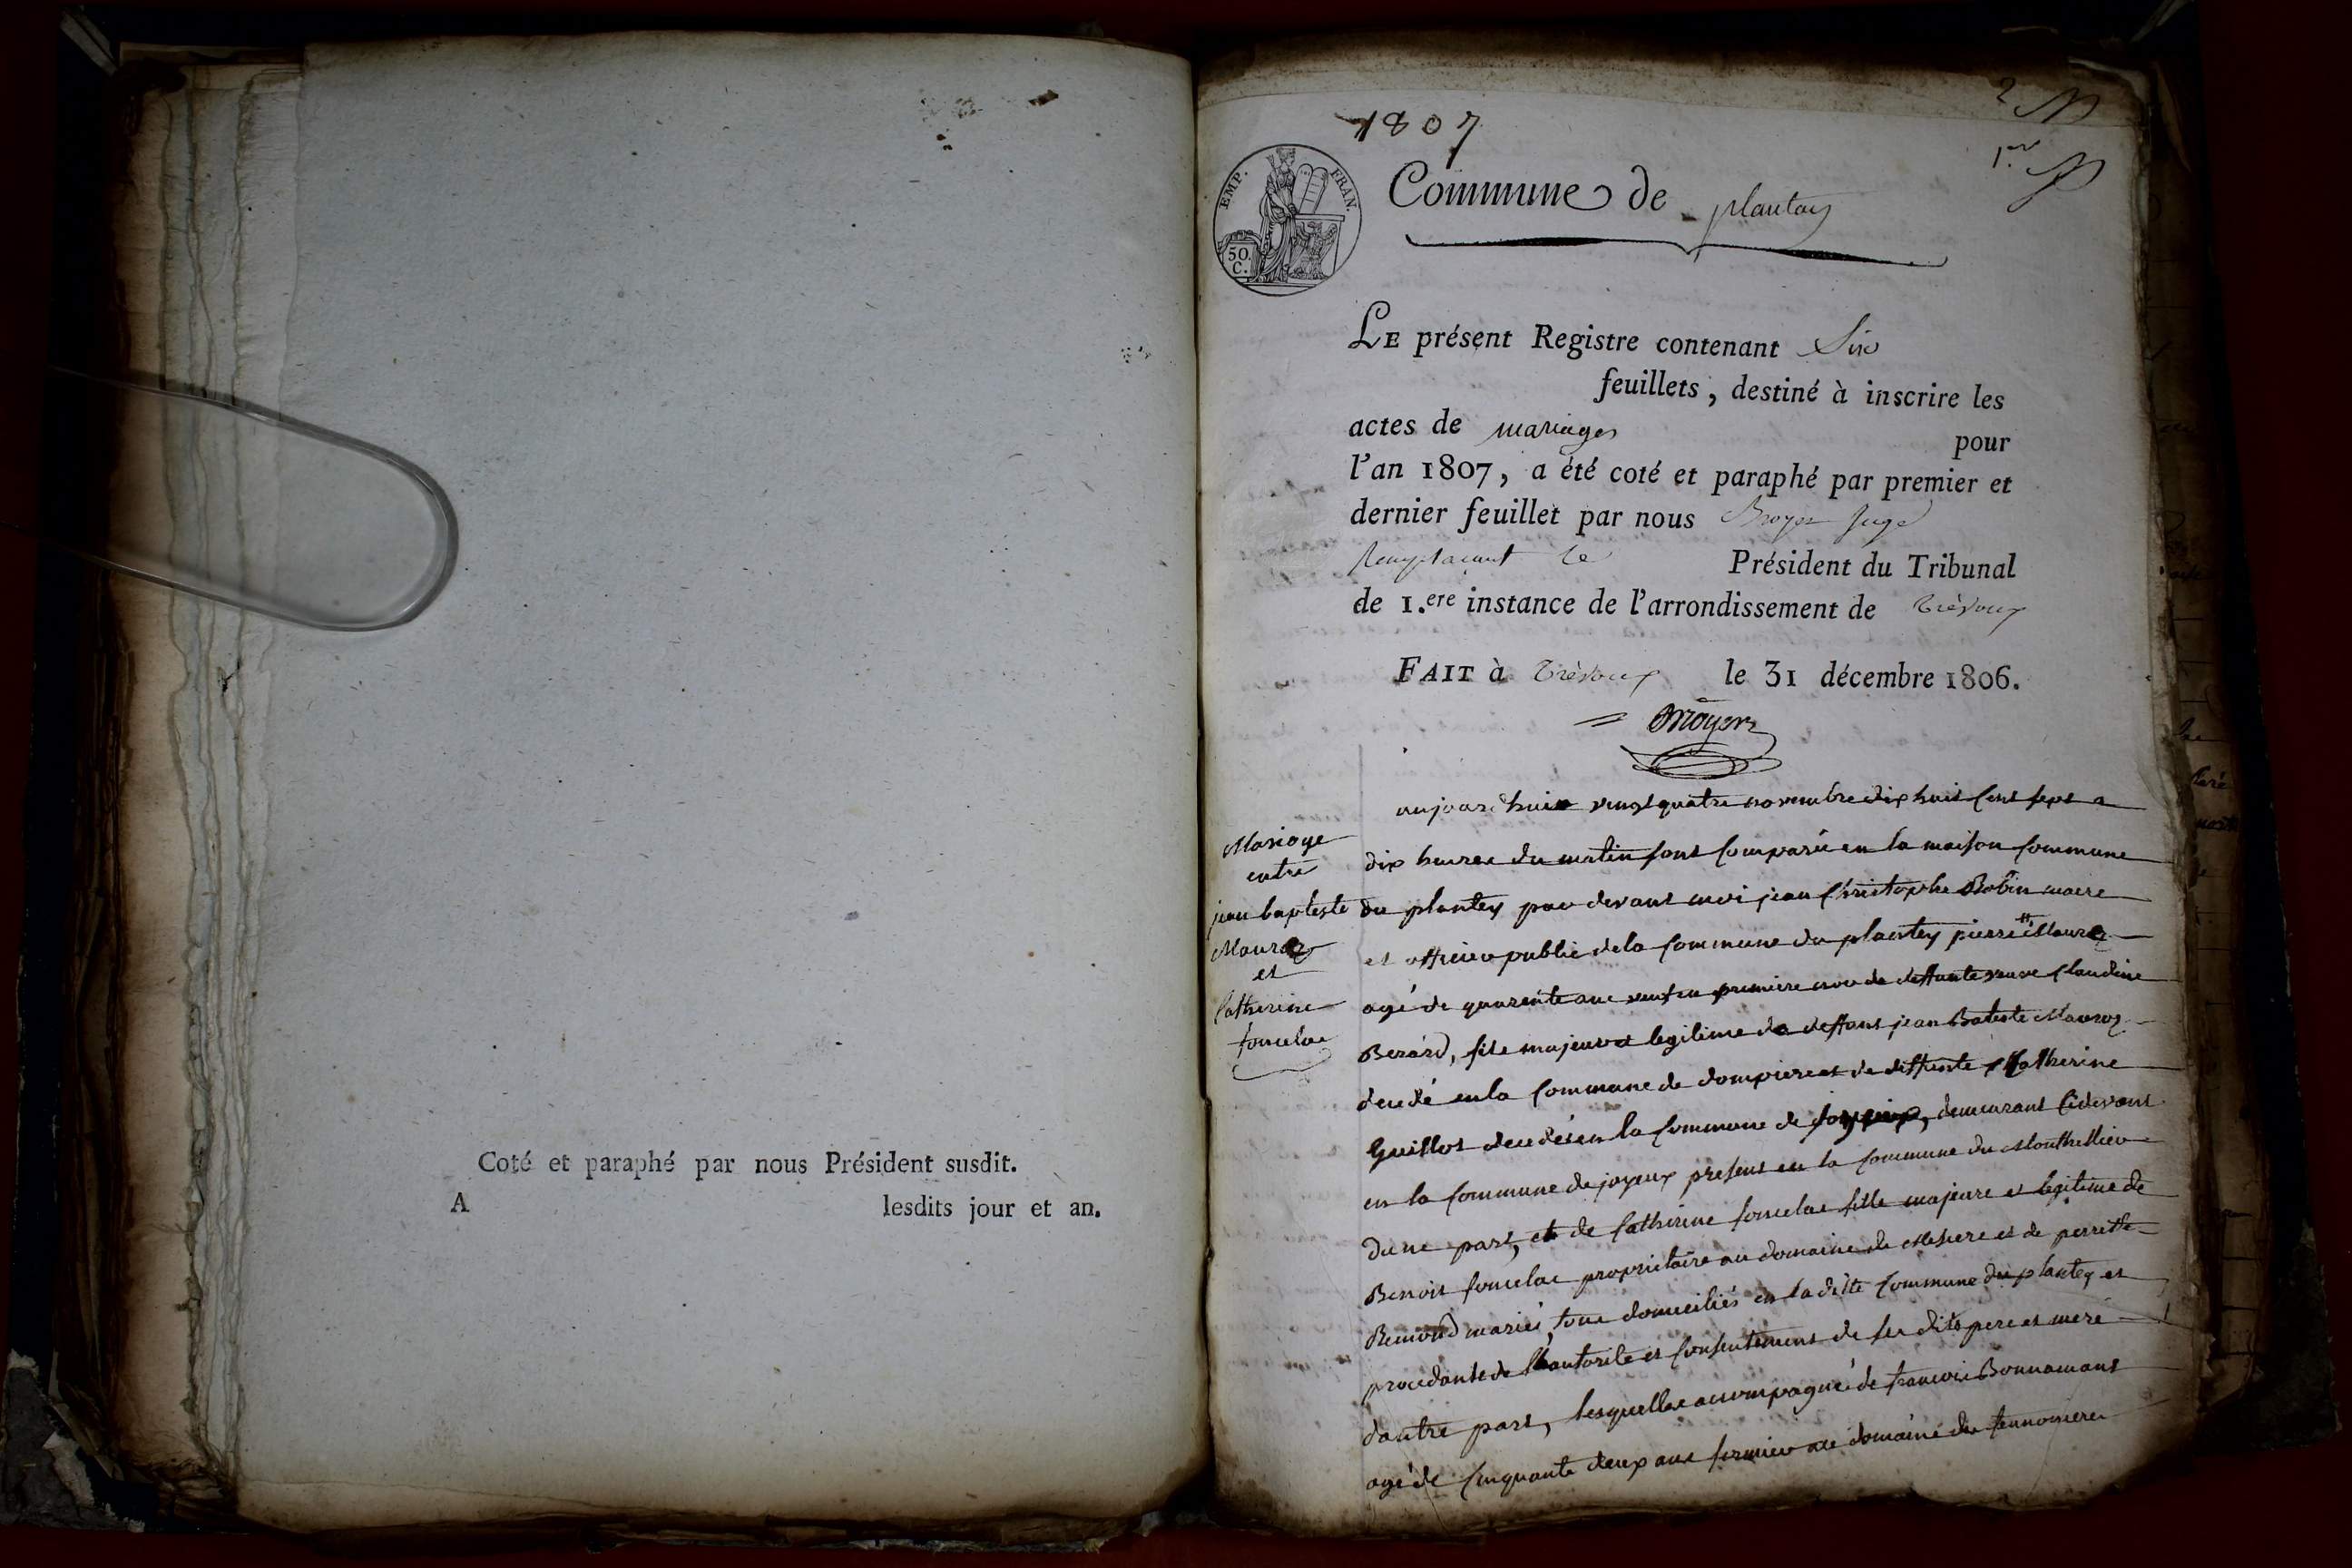 Coté et paraphé par nous Président susdit.
A lesdits jour et an.
1807
2
1er
EMP. FRAN.
50.
C.
Commune de plantay
LE présent Registre contenant Six
feuillets, destiné à inscrire les
actes de mariages pour
l'an 1807, a été coté et paraphé par premier et
dernier feuillet par nous Broyer Juge
Remplacant le Président du Tribunal
de 1.ere instance de l'arrondissement de Trévoux
FAIT à Trévoux le 31 décembre 1806.
Broyer
Mariage
entre
jean baptiste
Mauroz
et
Catherine
foncelac
aujourdhuit vingt quatre novembre dix huit cent sept a
dix heures du matin sont comparu en la maison commune
du plantey par devant moi jean Christophe Robin maire
et officier public de la commune du plantey pierre Mauroz
agé de quarente ans veuf en premiere de deffunte Claudine
Berard, fils majeur et legitime de deffunt jean Batiste Mauroz
decedé en la commune de dompierre et de deffunte Catherine
Guillot decedée en la commune de, demeurant cidevant
en la commune de joyeux present en la commune du Monthellier
dune part, et de Catherine foncelac fille majeure et legitime de
Benoit foncelac proprietaire au domaine de et de perrette
Remond mariés, tous domiciliés en la ditte commune du plantey et
procedante de l'autorite et consentement de ses dits pere et mere
dautre part, lesquelles accompagné de francois Bonnamant
agé de cinquante deux ans fermier au domaine de